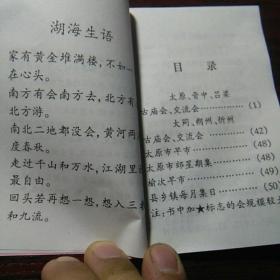 湖海生语
家有黄金堆满楼，不如一
在心头。
南方有会南方去，北方有
北方游。
南北二地都没会，黄河两
度春秋。
走过千山和万水，江湖里
最自由。
回头若再想一想，想入三
和九流。
目 录
太原、晋中、吕梁
古庙会、交流会 (1)
大同、朔州、忻州
古庙会、交流会 (42)
太原市早市 (48)
太原市郊星期集 (49)
榆次早市 (49)
县乡镇每月集日 (50
注：书中加★标志的会规模较大